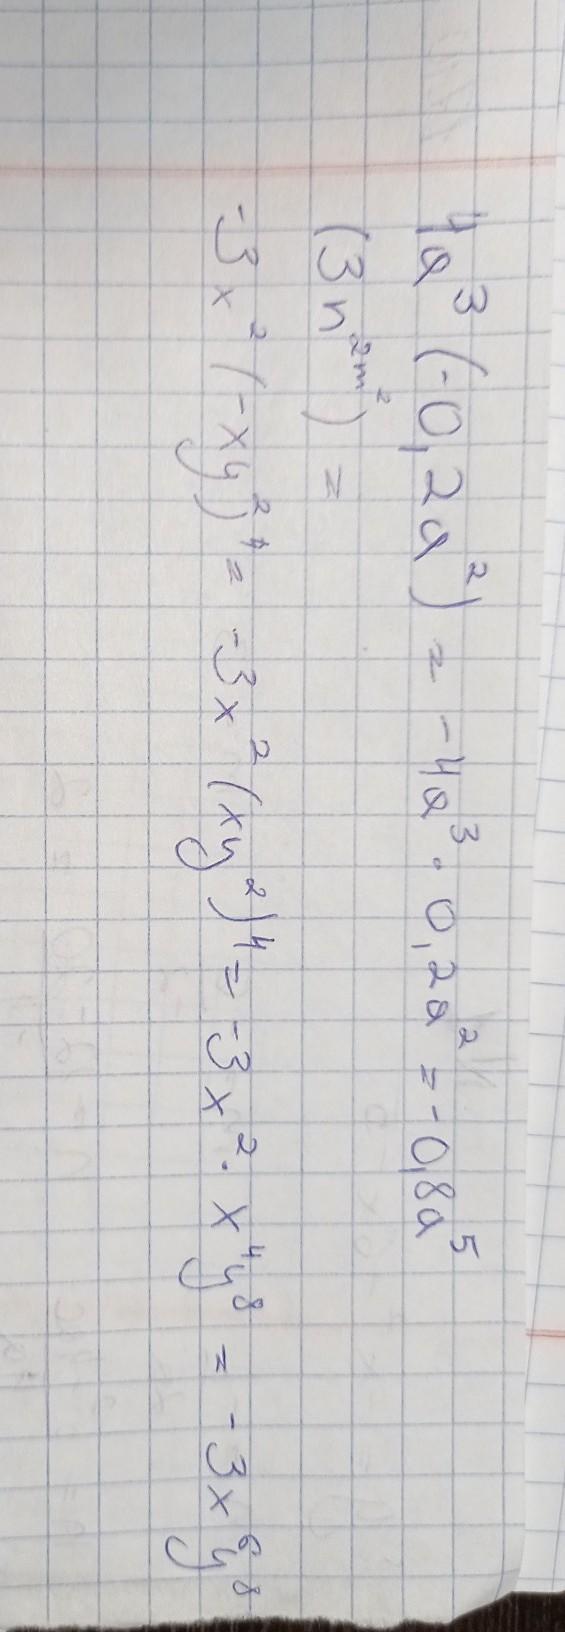 4a³(-0,2a²) = -4a³·0,2a² = -0,8a⁵
(3n^{2m²}) =
-3x²(-xy²)⁴ = -3x²(xy²)⁴ = -3x²·x⁴y⁸ = -3x⁶y⁸